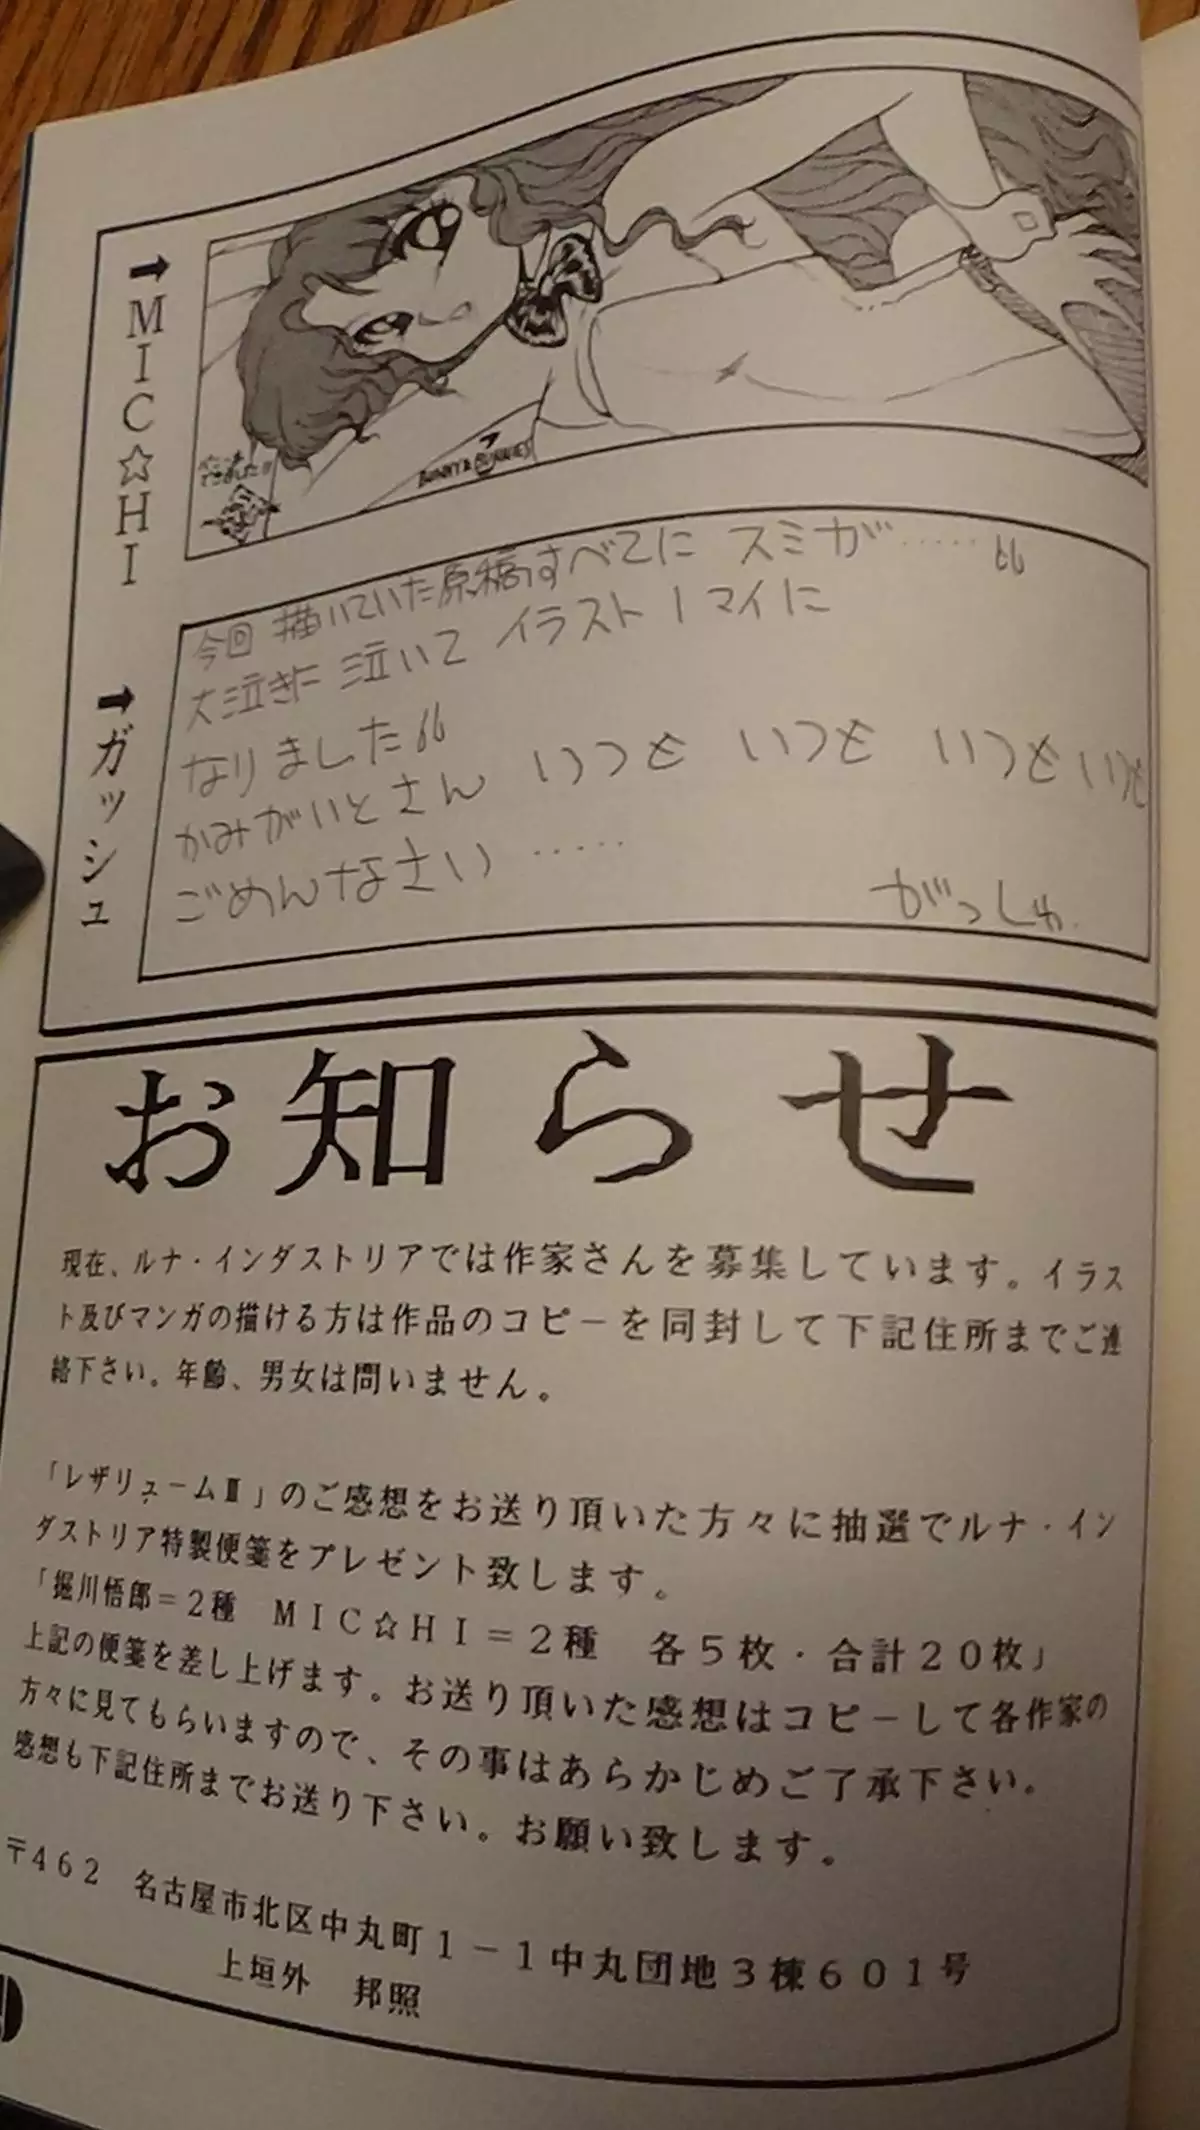 →MIC☆HI
BUNNY & BUNNIES
→ガッシュ
今回 描いていた原稿すべてに スミが……
大泣きに 泣いて イラスト1マイに
なりました
かみがいとさん いつも いつも いつも いつも
ごめんなさい……
がっしゅ.
お知らせ
現在、ルナ・インダストリアでは作家さんを募集しています。イラス
ト及びマンガの描ける方は作品のコピーを同封して下記住所までご連
絡下さい。年齢、男女は問いません。
「レザリュームⅢ」のご感想をお送り頂いた方々に抽選でルナ・イン
ダストリア特製便箋をプレゼント致します。
「堀川悟郎=2種 MIC☆HI=2種 各5枚・合計20枚」
上記の便箋を差し上げます。お送り頂いた感想はコピーして各作家の
方々に見てもらいますので、その事はあらかじめご了承下さい。
感想も下記住所までお送り下さい。お願い致します。
〒462 名古屋市北区中丸町1-1中丸団地3棟601号
上垣外 邦照